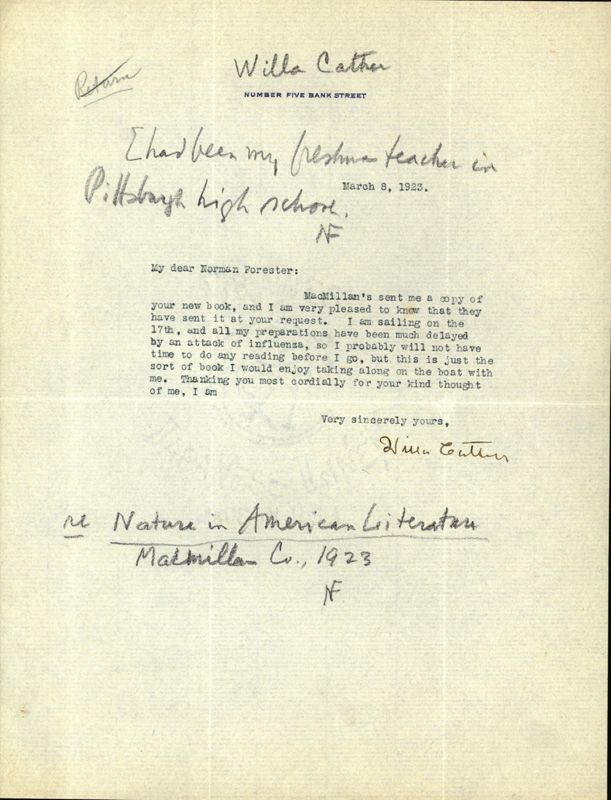 Return
Willa Cather
NUMBER FIVE BANK STREET
had been my freshman teacher in
Pittsburgh high school.
March 8, 1923.
NF
My dear Norman Forester:
MacMillan's sent me a copy of
your new book, and I am very pleased to know that they
have sent it at your request. I am sailing on the
17th, and all my preparations have been much delayed
by an attack of influenza, so I probably will not have
time to do any reading before I go, but this is just the
sort of book I would enjoy taking along on the boat with
me. Thanking you most cordially for your kind thought
of me, I am
Very sincerely yours,
Willa Cather
re Nature in American Literature
Macmillan Co., 1923
NF